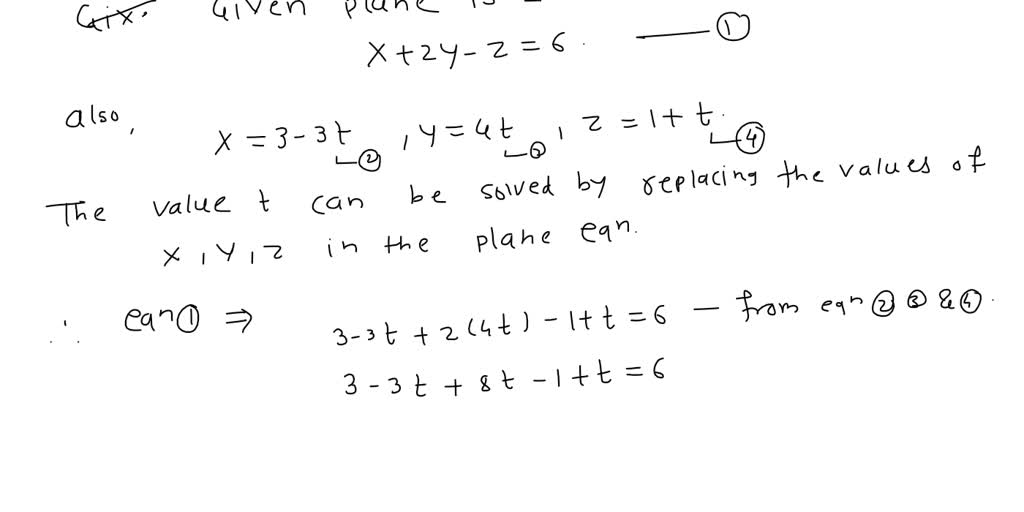 Given plane is -
x + 2y - z = 6. —— ①
also,
x = 3 - 3t ②, y = 4t ③, z = 1 + t. ④
The value t can be solved by replacing the values of
x, y, z in the plane eqn.
∴ eqn ① ⇒
3 - 3t + 2(4t) - 1 + t = 6 — from eqn ② ③ & ④.
3 - 3t + 8t - 1 + t = 6